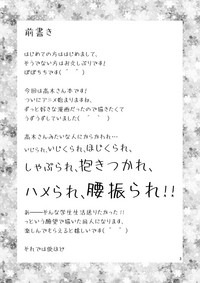 前書き
はじめての方ははじめまして、
そうでない方はお久しぶりです!
ぽぽちちです(゜ ゜)
今回は高木さん本です!
ついにアニメ始まりますね。
ずっと好きな漫画だったので描きたくて
うずうずしていました(゜ ゜)
高木さんみたいな人にからかわれ…
いじられ、いじくられ、ほじくられ、
しゃぶられ、抱きつかれ、
ハメられ、腰振られ!!
あーーーそんな学生生活送りたかった!!
っという願望で描いた本になります。
楽しんでもらえると嬉しいです(゜ ゜)
それでは後ほど